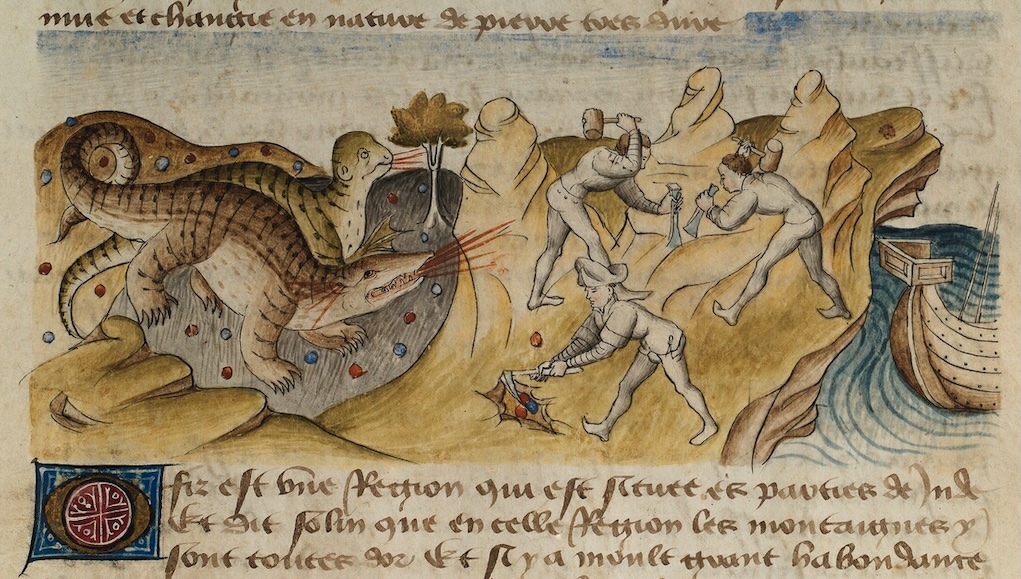 mue et changie en nature de pierre tres dure
Ofir est vne Region qui est situee es parties de Jnde
Et dit solin que en celle Region les montaignes y
sont toutes dor Et si y a moult grant habondance